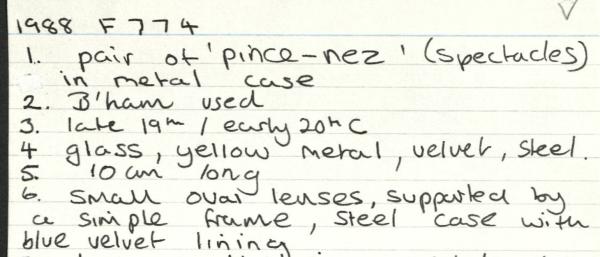 1988 F 774
1. pair of 'pince-nez' (spectacles)
in metal case
2. B'ham used
3. late 19th / early 20th C
4 glass, yellow metal, velvet, steel.
5. 10 cm long
6. small oval lenses, supported by
a simple frame, steel case with
blue velvet lining